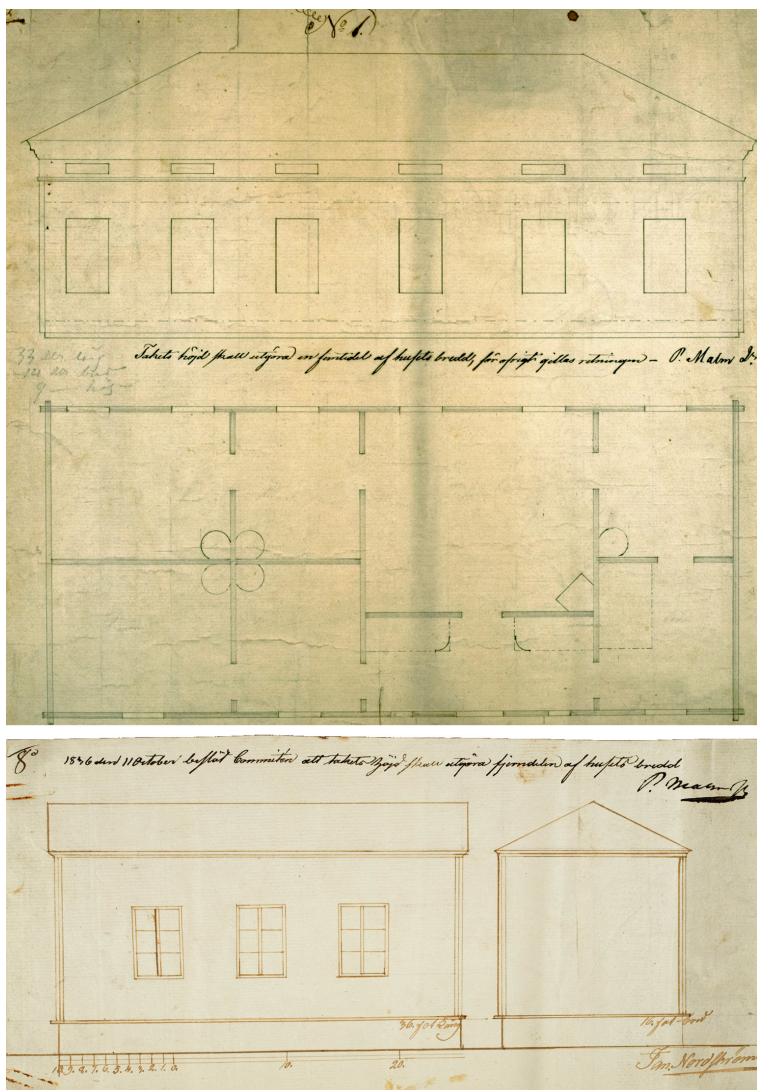 No 1.
Takets höjd skall utgöra en femtedel af husets bredd, för öfrigt gillas ritningen – P. Malm Jr
33 aln lång
14 aln bred
9 – hög –
1836 den 11 October beslöt Committén att takets höjd skall utgöra fjerndelen af husets bredd
P. Malm Jr
36. fot Lång
16. fot bred
10. 9. 8. 7. 6. 5. 4. 3. 2. 1. 0. 10. 20.
Jan. Nordström